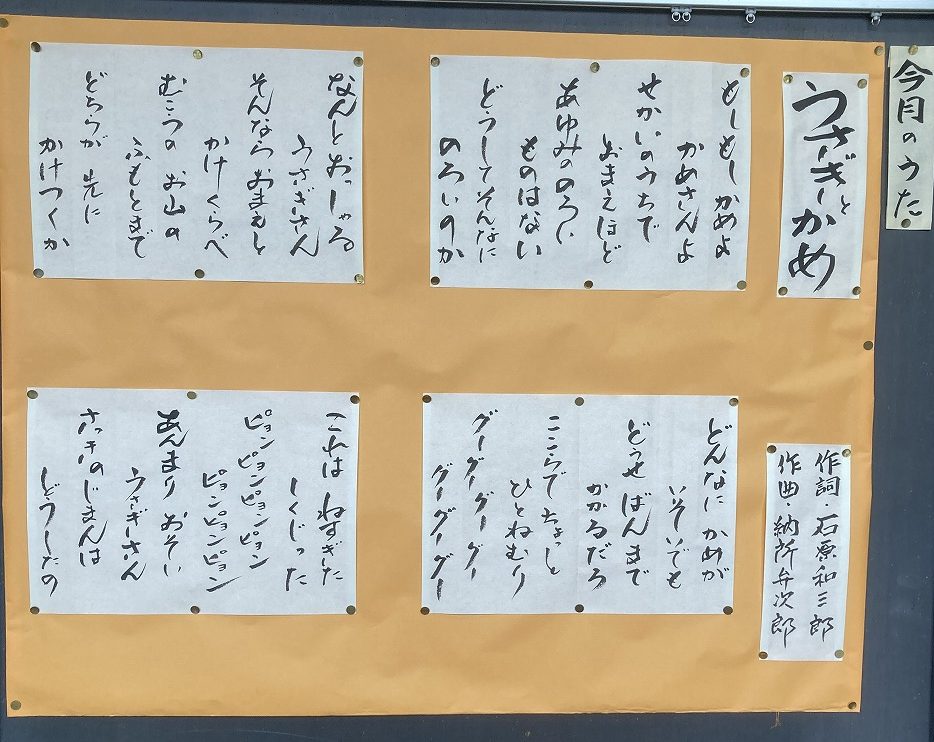 今月のうた
うさぎとかめ
作詞・石原和三郎
作曲・納所弁次郎
もしもし かめよ
かめさんよ
せかいのうちで
おまえほど
あゆみのろい
ものはない
どうしてそんなに
のろいのか
なんとおっしゃる
うさぎさん
そんなら おまえと
かけくらべ
むこうの お山の
ふもとまで
どちらが 先に
かけつくか
どんなに かめが
いそいでも
どうせ ばんまで
かかるだろ
ここらで ちょっと
ひとねむり
グーグーグーグー
グーグーグー
これは ねすぎた
しくじった
ピョンピョンピョンピョン
ピョンピョンピョン
あんまり おそい
うさぎさん
さっきのじまんは
どうしたの